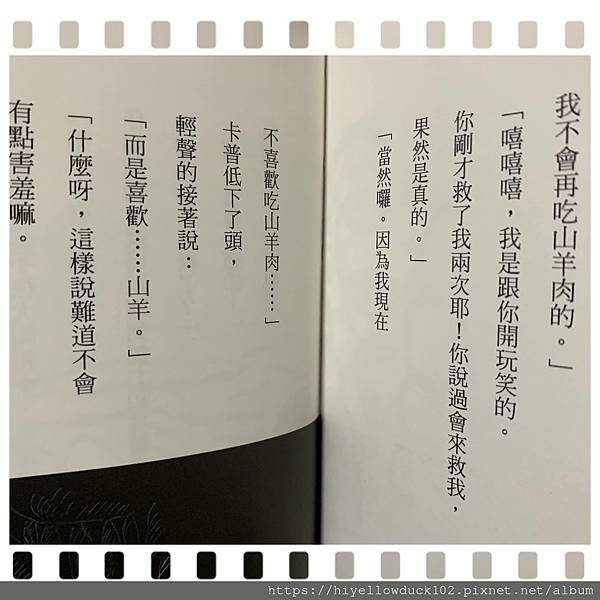 我不會再吃山羊肉的。」
「嘻嘻嘻，我是跟你開玩笑的。
你剛才救了我兩次耶！你說過會來救我，
果然是真的。」
「當然囉。因為我現在
不喜歡吃山羊肉……」
卡普低下了頭，
輕聲的接著說：
「而是喜歡……山羊。」
「什麼呀，這樣說難道不會
有點害羞嘛。
https://hiyellowduck102.pixnet.net/album